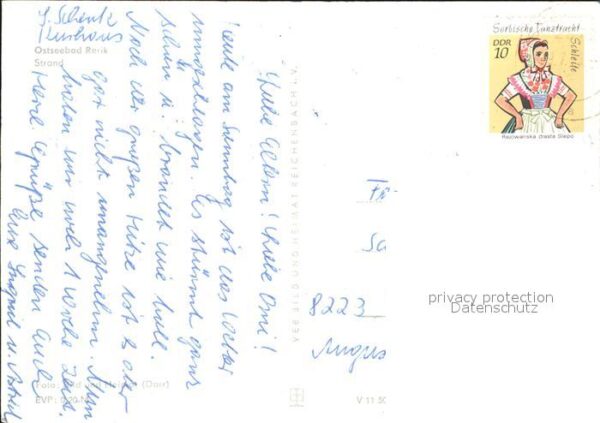 J. Schenk
Kurhaus
Ostseebad Rerik
Strand
Liebe Eltern! Liebe Omi!
Heute am Sonntag ist das Wetter
umgeschlagen. Es stürmt ganz
schön u. brandet wie toll.
Nach der großen Hitze ist es aber
gar nicht unangenehm. Nun
haben wir noch 1 Woche Zeit.
Herzl. Grüße senden Euch
Eure Ingrid u. Astrid
EVP: 0,20 M
VEB BILD UND HEIMAT REICHENBACH i. V.
V 11 50
Sorbische Tanztracht
DDR
10
Schleife
Rejowanska drasta Slepo
8223
privacy protection
Datenschutz